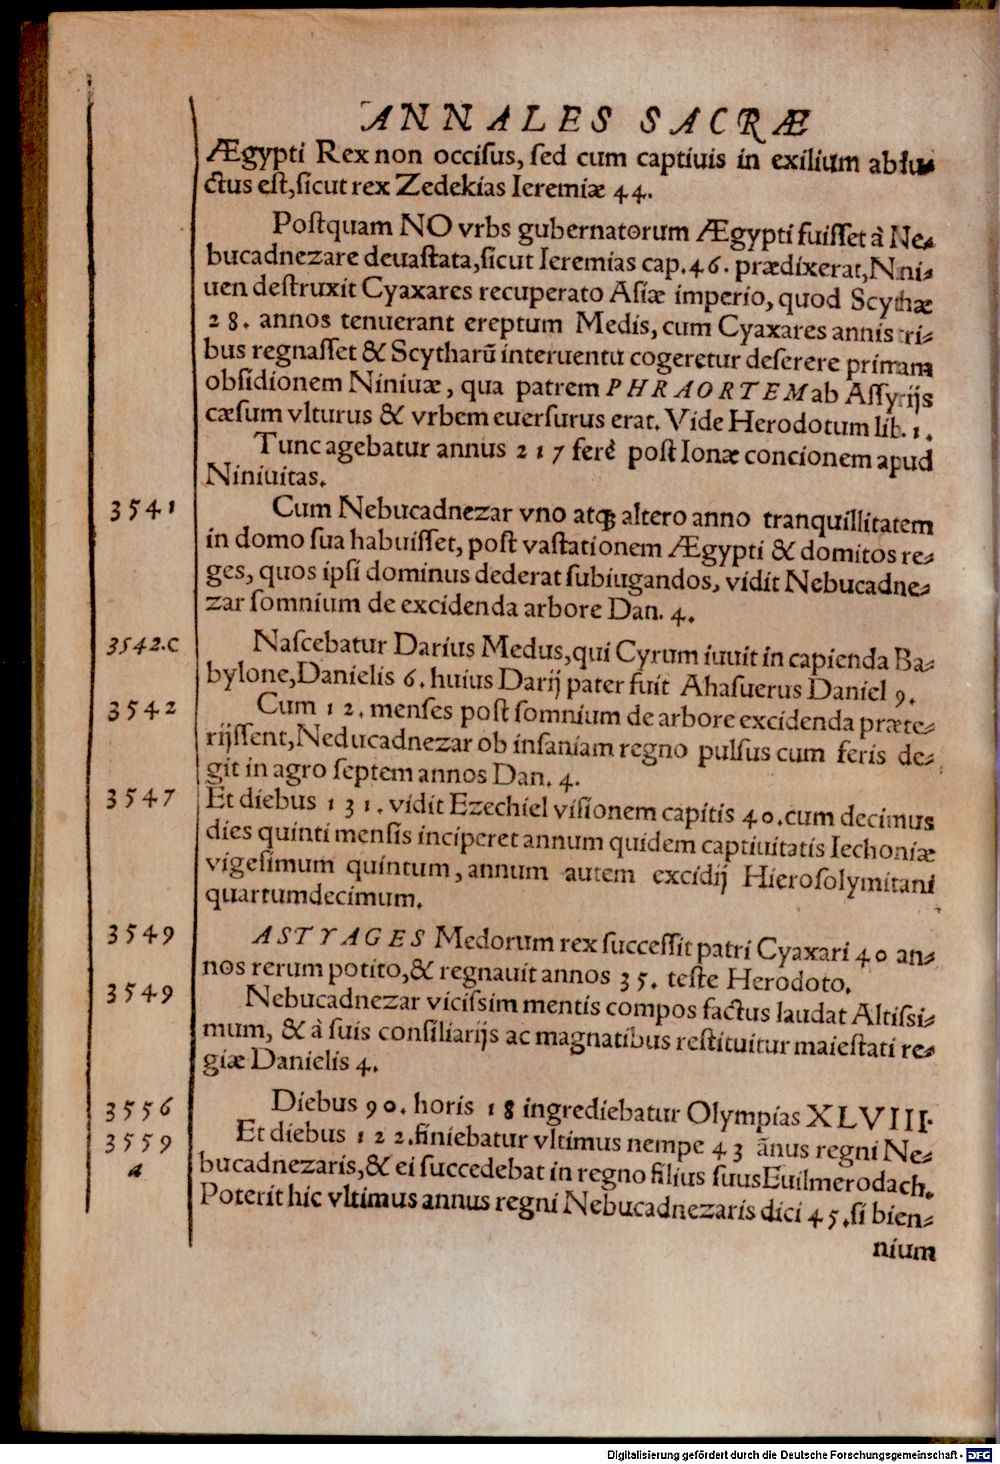 ANNALES SACRÆ
Ægypti Rex non occiſus, ſed cum captiuis in exilium abdu-
ctus eſt, ſicut rex Zedekias Ieremiæ 44.
Poſtquam NO vrbs gubernatorum Ægypti fuiſſet à Ne-
bucadnezare deuaſtata, ſicut Ieremias cap. 46. prædixerat, Nini-
uen deſtruxit Cyaxares recuperato Aſiæ imperio, quod Scythæ
28. annos tenuerant ereptum Medis, cum Cyaxares annis tri-
bus regnaſſet & Scytharū interuentu cogeretur deſerere primam
obſidionem Niniuæ, qua patrem PHRAORTEM ab Aſſyrijs
cæſum vlturus & vrbem euerſurus erat. Vide Herodotum lib. 1.
Tunc agebatur annus 217 ferè poſt Ionæ concionem apud
Niniuitas.
3541 Cum Nebucadnezar vno atqꝫ altero anno tranquillitatem
in domo ſua habuiſſet, poſt vaſtationem Ægypti & domitos re-
ges, quos ipſi dominus dederat ſubiugandos, vidit Nebucadne-
zar ſomnium de excidenda arbore Dan. 4.
3542.C Naſcebatur Darius Medus, qui Cyrum iuuit in capienda Ba-
bylone, Danielis 6. huius Darij pater fuit Ahaſuerus Daniel 9.
3542 Cum 12. menſes poſt ſomnium de arbore excidenda præte-
rijſſent, Neducadnezar ob inſaniam regno pulſus cum feris de-
git in agro ſeptem annos Dan. 4.
3547 Et diebus 131. vidit Ezechiel viſionem capitis 40. cum decimus
dies quinti menſis inciperet annum quidem captiuitatis Iechoniæ
vigeſimum quintum, annum autem excidij Hieroſolymitani
quartumdecimum.
3549 ASTYAGES Medorum rex ſucceſſit patri Cyaxari 40 an-
nos rerum potito, & regnauit annos 35. teſte Herodoto.
3549 Nebucadnezar viciſsim mentis compos factus laudat Altiſsi-
mum, & à ſuis conſiliarijs ac magnatibus reſtituitur maieſtati re-
giæ Danielis 4.
3556 Diebus 90. horis 18 ingrediebatur Olympias XLVIII.
3559 Et diebus 122. finiebatur vltimus nempe 43 ānus regni Ne-
a bucadnezaris, & ei ſuccedebat in regno filius ſuus Euilmerodach.
Poterit hic vltimus annus regni Nebucadnezaris dici 45. ſi bien-
nium
Digitalisierung gefördert durch die Deutsche Forschungsgemeinschaft - DFG